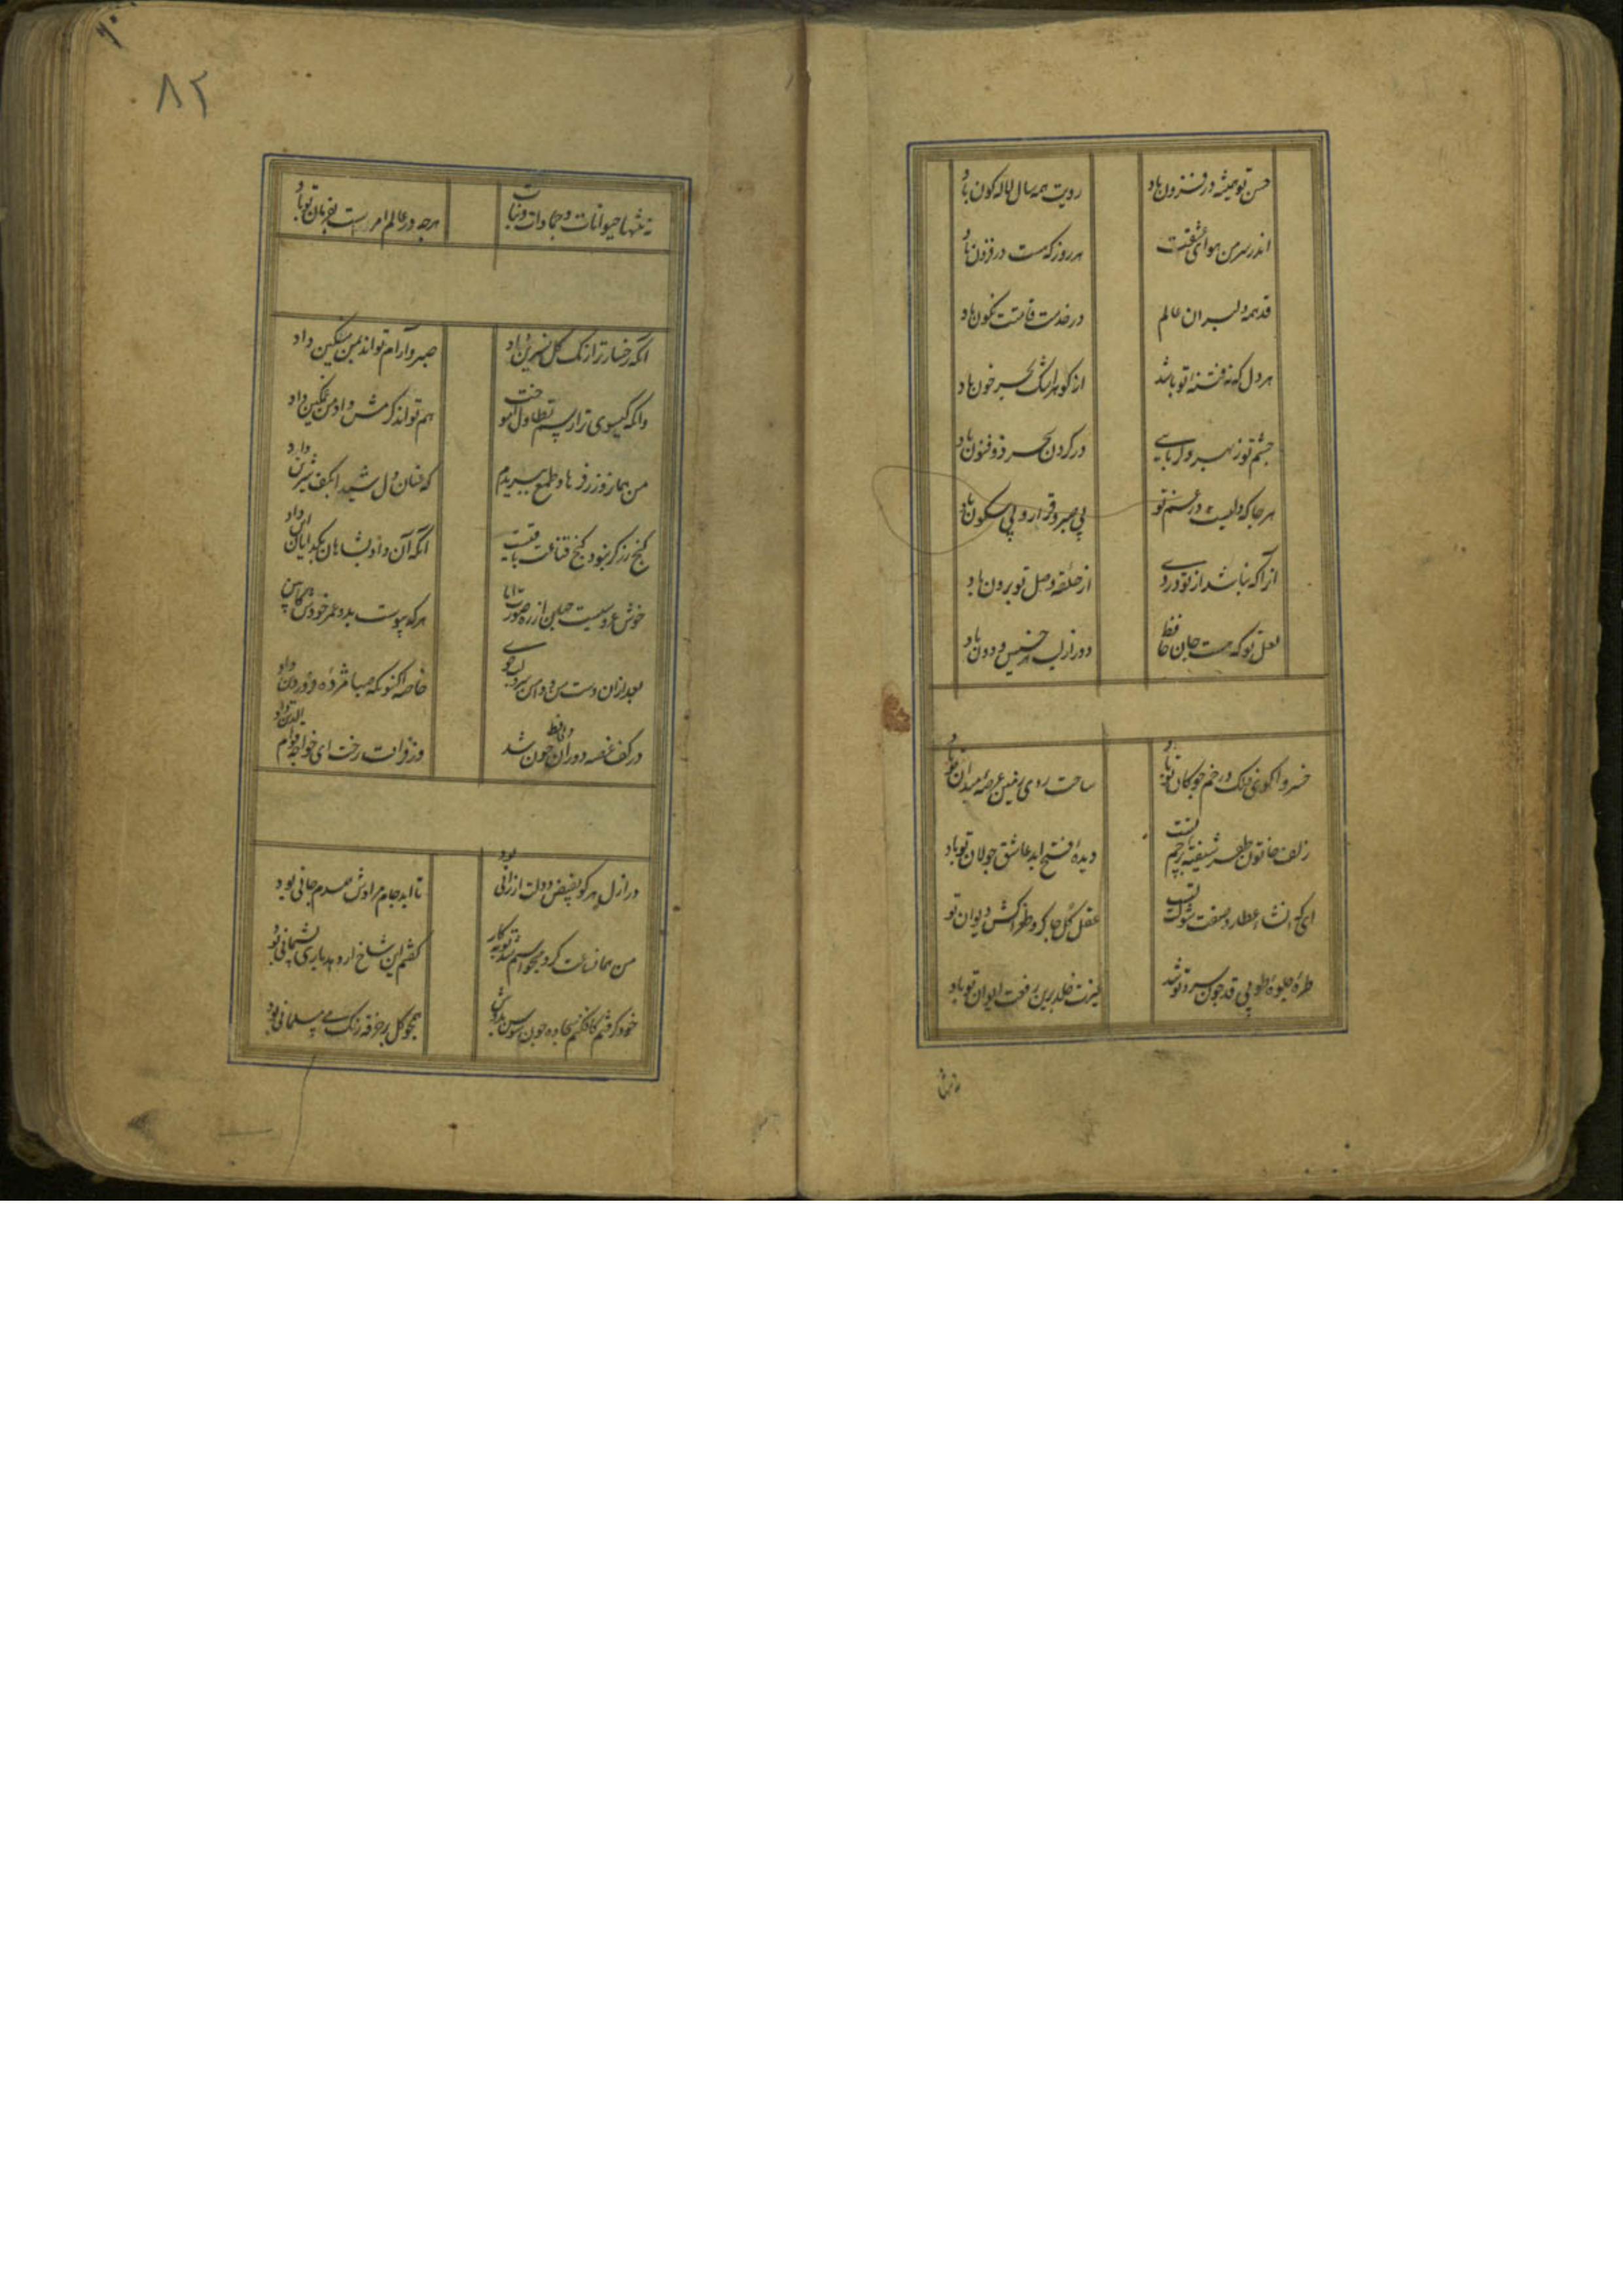 حسن تو همیشه در فزون باد رویت همه سال لاله کون باد
اندر سر من هوای عشقت هر روز که هست در فزون باد
قد همه دلبران عالم در خدمت قامتت نکون باد
هر دل که نه فتنه تو باشد از کوهر اشک بحر خون باد
چشم تو ز بهر دلربایی در کردن سحر ذو فنون باد
هر جا که دلیست در غم تو بی صبر و قرار و بی سکون باد
انرا که نباشد از تو دردی از حلقه وصل تو برون باد
لعل تو که هست جان حافظ دور از لب هر خسیس و دون باد
خسروا کوی فلک در خم چوکان تو باد ساحت روی زمین عرصه میدان تو باد
زلف خاتون ظفر شیفته پرچم تست دیده فتح ابد عاشق جولان تو باد
ای که انشاء عطارد صفت شوکت تست عقل کل چاکر طغراکش دیوان تو
طره جلوه طوبی قد چون سرو تو شد غیرت خلد برین رفعت ایوان تو باد
نه تنها
۸۲
نه تنها حیوانات و جمادات و نبات هرچه در عالم امر است بفرمان تو باد
انکه رخسار ترا رنک کل نسرین داد صبر و آرام تواند بمن مسکین داد
وانکه کیسوی ترا رسم تطاول آموخت هم تواند کرمش داد من غمکین داد
من هماز روز ز فرهاد طمع ببریدم که عنان دل شیدا بکف شیرین داد
کنج زر کر نبود کنج قناعت باقیست انکه آن داد بشاهان بکدایان این داد
خوش عروسیست جهان از ره صورت اما هر که پیوست بدو عمر خودش کابین داد
بعد ازین دست من و دامن سرو لب جوی خاصه اکنون که صبا مژده فروردین داد
در کف غصه دوران دل حافظ خون شد وز فراقت رخت ای خواجه قوام الدین داد
در ازل هر کو بفیض دولت ارزانی بود تا ابد جام مرادش همدم جانی بود
من همان ساعت که از می خواستم شد توبه کار کفتم این شاخ ار دهد باری پشیمانی بود
خود کرفتم کافکنم سجاده چون سوسن بدوش همچو کل بر خرقه رنک می مسلمانی بود